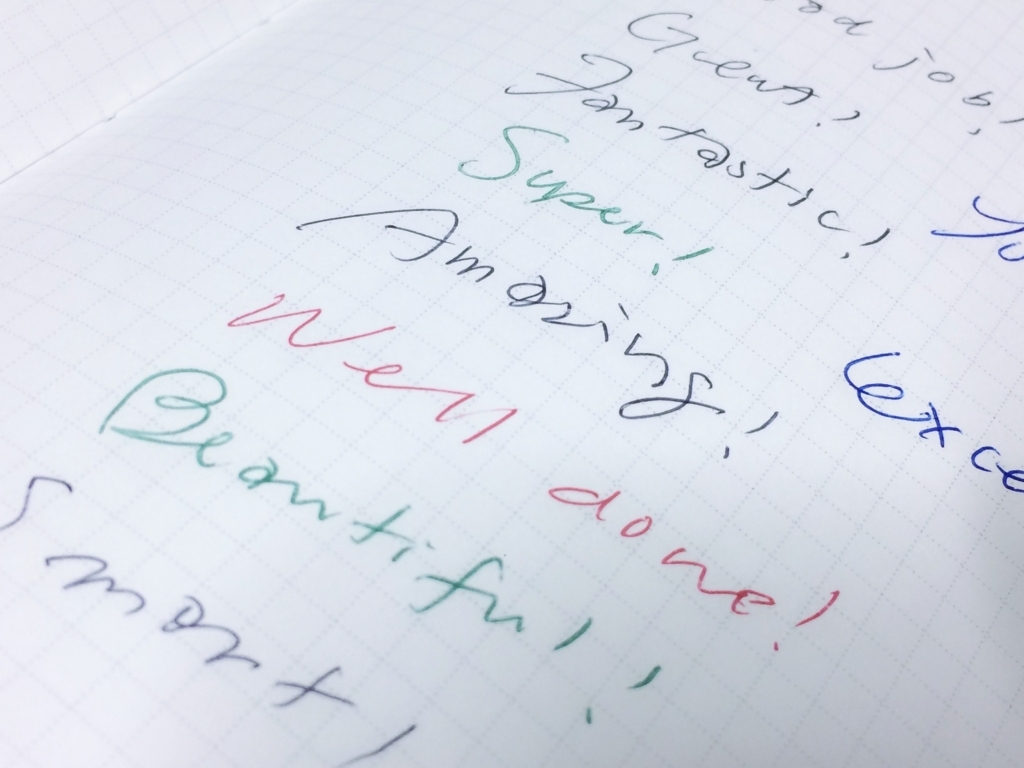 job!
Great!
Fantastic!
Super!
Amazing!
Well done!
Beautiful!
Smart!